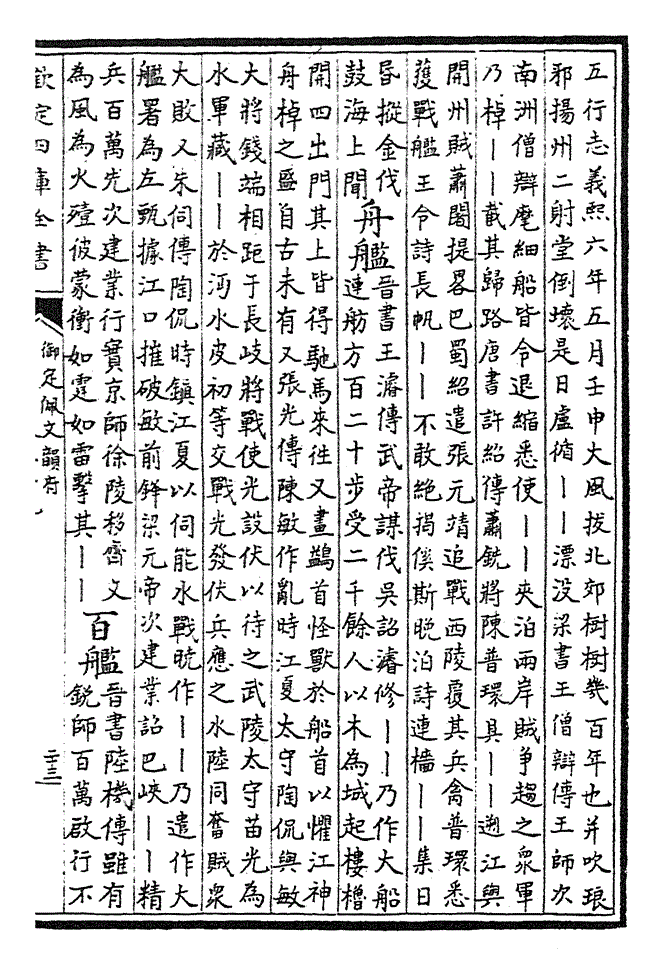 五行志義熙六年五月壬申大風拔北郊樹樹幾百年也并吹琅
邪揚州二射堂倒壞是日盧循丨丨漂没梁書王僧辯傳王師次
南洲僧辯麾細船皆令退縮悉使丨丨夾泊兩岸賊爭趨之衆軍
乃棹丨丨截其歸路唐書許紹傳蕭銑將陳普環具丨丨遡江與
開州賊蕭闍提畧巴蜀紹遣張元靖追戰西陵覆其兵禽普環悉
獲戰艦王令詩長帆丨丨不敢絶揭傒斯晚泊詩連檣丨丨集日
昏摐金伐
鼓海上聞舟艦晉書王濬傳武帝謀伐吳詔濬修丨丨乃作大船
連舫方百二十步受二千餘人以木為城起樓櫓
開四出門其上皆得馳馬來徃又畫鷁首怪獸於船首以懼江神
舟棹之盛自古未有又張光傳陳敏作亂時江夏太守陶侃與敏
大將錢端相距于長岐將戰使光設伏以待之武陵太守苗光為
水軍藏丨丨於沔水皮初等交戰光發伏兵應之水陸同奮賊衆
大敗又朱伺傳陶侃時鎮江夏以伺能水戰曉作丨丨乃遣作大
艦署為左甄據江口摧破敏前鋒梁元帝次建業詔巴峽丨丨精
兵百萬先次建業行實京師徐陵移齊文
為風為火殪彼蒙衝如霆如雷擊其丨丨百艦晉書陸機傳雖有
銳師百萬啟行不
欽定四庫全書
御定佩文韻府
二十三